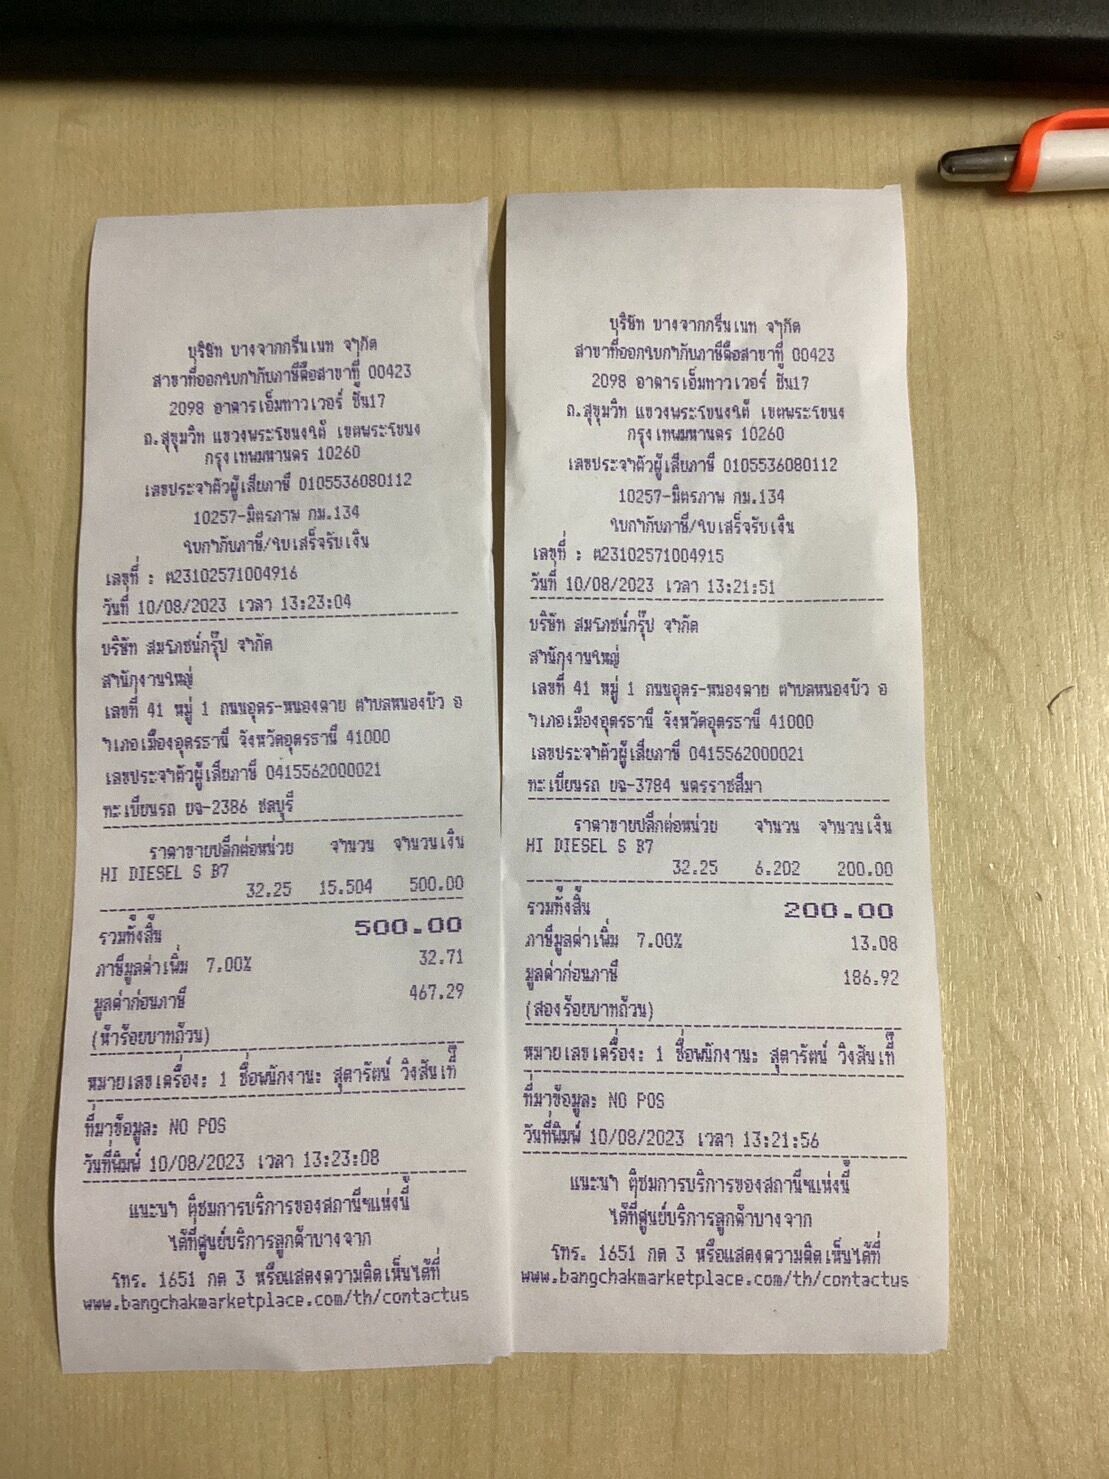 บริษัท บางจากกรีนเนท จำกัด
สาขาที่ออกใบกำกับภาษีคือสาขาที่ 00423
2098 อาคารเอ็มทาวเวอร์ ชั้น17
ถ.สุขุมวิท แขวงพระโขนงใต้ เขตพระโขนง
กรุงเทพมหานคร 10260
เลขประจำตัวผู้เสียภาษี 0105536080112
10257-มิตรภาพ กม.134
ใบกำกับภาษี/ใบเสร็จรับเงิน
เลขที่ : ต23102571004916
วันที่ 10/08/2023 เวลา 13:23:04
บริษัท สมโภชน์กรุ๊ป จำกัด
สำนักงานใหญ่
เลขที่ 41 หมู่ 1 ถนนอุดร-หนองคาย ตำบลหนองบัว อ
ำเภอเมืองอุดรธานี จังหวัดอุดรธานี 41000
เลขประจำตัวผู้เสียภาษี 0415562000021
ทะเบียนรถ ยฉ-2386 ชลบุรี
ราคาขายปลีกต่อหน่วย จำนวน จำนวนเงิน
HI DIESEL S B7
32.25 15.504 500.00
รวมทั้งสิ้น 500.00
ภาษีมูลค่าเพิ่ม 7.00% 32.71
มูลค่าก่อนภาษี 467.29
(ห้าร้อยบาทถ้วน)
หมายเลขเครื่อง: 1 ชื่อพนักงาน: สุดารัตน์ วิงสันเที๊ี
ที่มาข้อมูล: NO POS
วันที่พิมพ์ 10/08/2023 เวลา 13:23:08
แนะนำ ติชมการบริการของสถานีฯแห่งนี้
ได้ที่ศูนย์บริการลูกค้าบางจาก
โทร. 1651 กด 3 หรือแสดงความคิดเห็นได้ที่
www.bangchakmarketplace.com/th/contactus
บริษัท บางจากกรีนเนท จำกัด
สาขาที่ออกใบกำกับภาษีคือสาขาที่ 00423
2098 อาคารเอ็มทาวเวอร์ ชั้น17
ถ.สุขุมวิท แขวงพระโขนงใต้ เขตพระโขนง
กรุงเทพมหานคร 10260
เลขประจำตัวผู้เสียภาษี 0105536080112
10257-มิตรภาพ กม.134
ใบกำกับภาษี/ใบเสร็จรับเงิน
เลขที่ : ต23102571004915
วันที่ 10/08/2023 เวลา 13:21:51
บริษัท สมโภชน์กรุ๊ป จำกัด
สำนักงานใหญ่
เลขที่ 41 หมู่ 1 ถนนอุดร-หนองคาย ตำบลหนองบัว อ
ำเภอเมืองอุดรธานี จังหวัดอุดรธานี 41000
เลขประจำตัวผู้เสียภาษี 0415562000021
ทะเบียนรถ ยฉ-3784 นครราชสีมา
ราคาขายปลีกต่อหน่วย จำนวน จำนวนเงิน
HI DIESEL S B7
32.25 6.202 200.00
รวมทั้งสิ้น 200.00
ภาษีมูลค่าเพิ่ม 7.00% 13.08
มูลค่าก่อนภาษี 186.92
(สองร้อยบาทถ้วน)
หมายเลขเครื่อง: 1 ชื่อพนักงาน: สุดารัตน์ วิงสันเที๊ี
ที่มาข้อมูล: NO POS
วันที่พิมพ์ 10/08/2023 เวลา 13:21:56
แนะนำ ติชมการบริการของสถานีฯแห่งนี้
ได้ที่ศูนย์บริการลูกค้าบางจาก
โทร. 1651 กด 3 หรือแสดงความคิดเห็นได้ที่
www.bangchakmarketplace.com/th/contactus